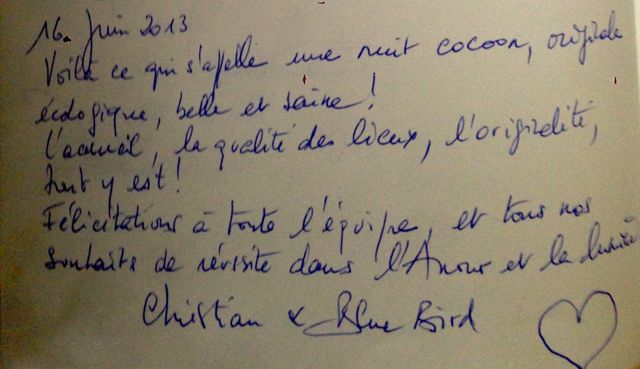 16. Juin 2013
Voilà ce qui s'appelle une nuit cocoon, originale
écologique, belle et saine !
L'accueil, la qualité des lieux, l'originalité,
tout y est !
Félicitations à toute l'équipe, et tous nos
souhaits de réussite dans l'Amour et la lumière
Christian & Blue Bird